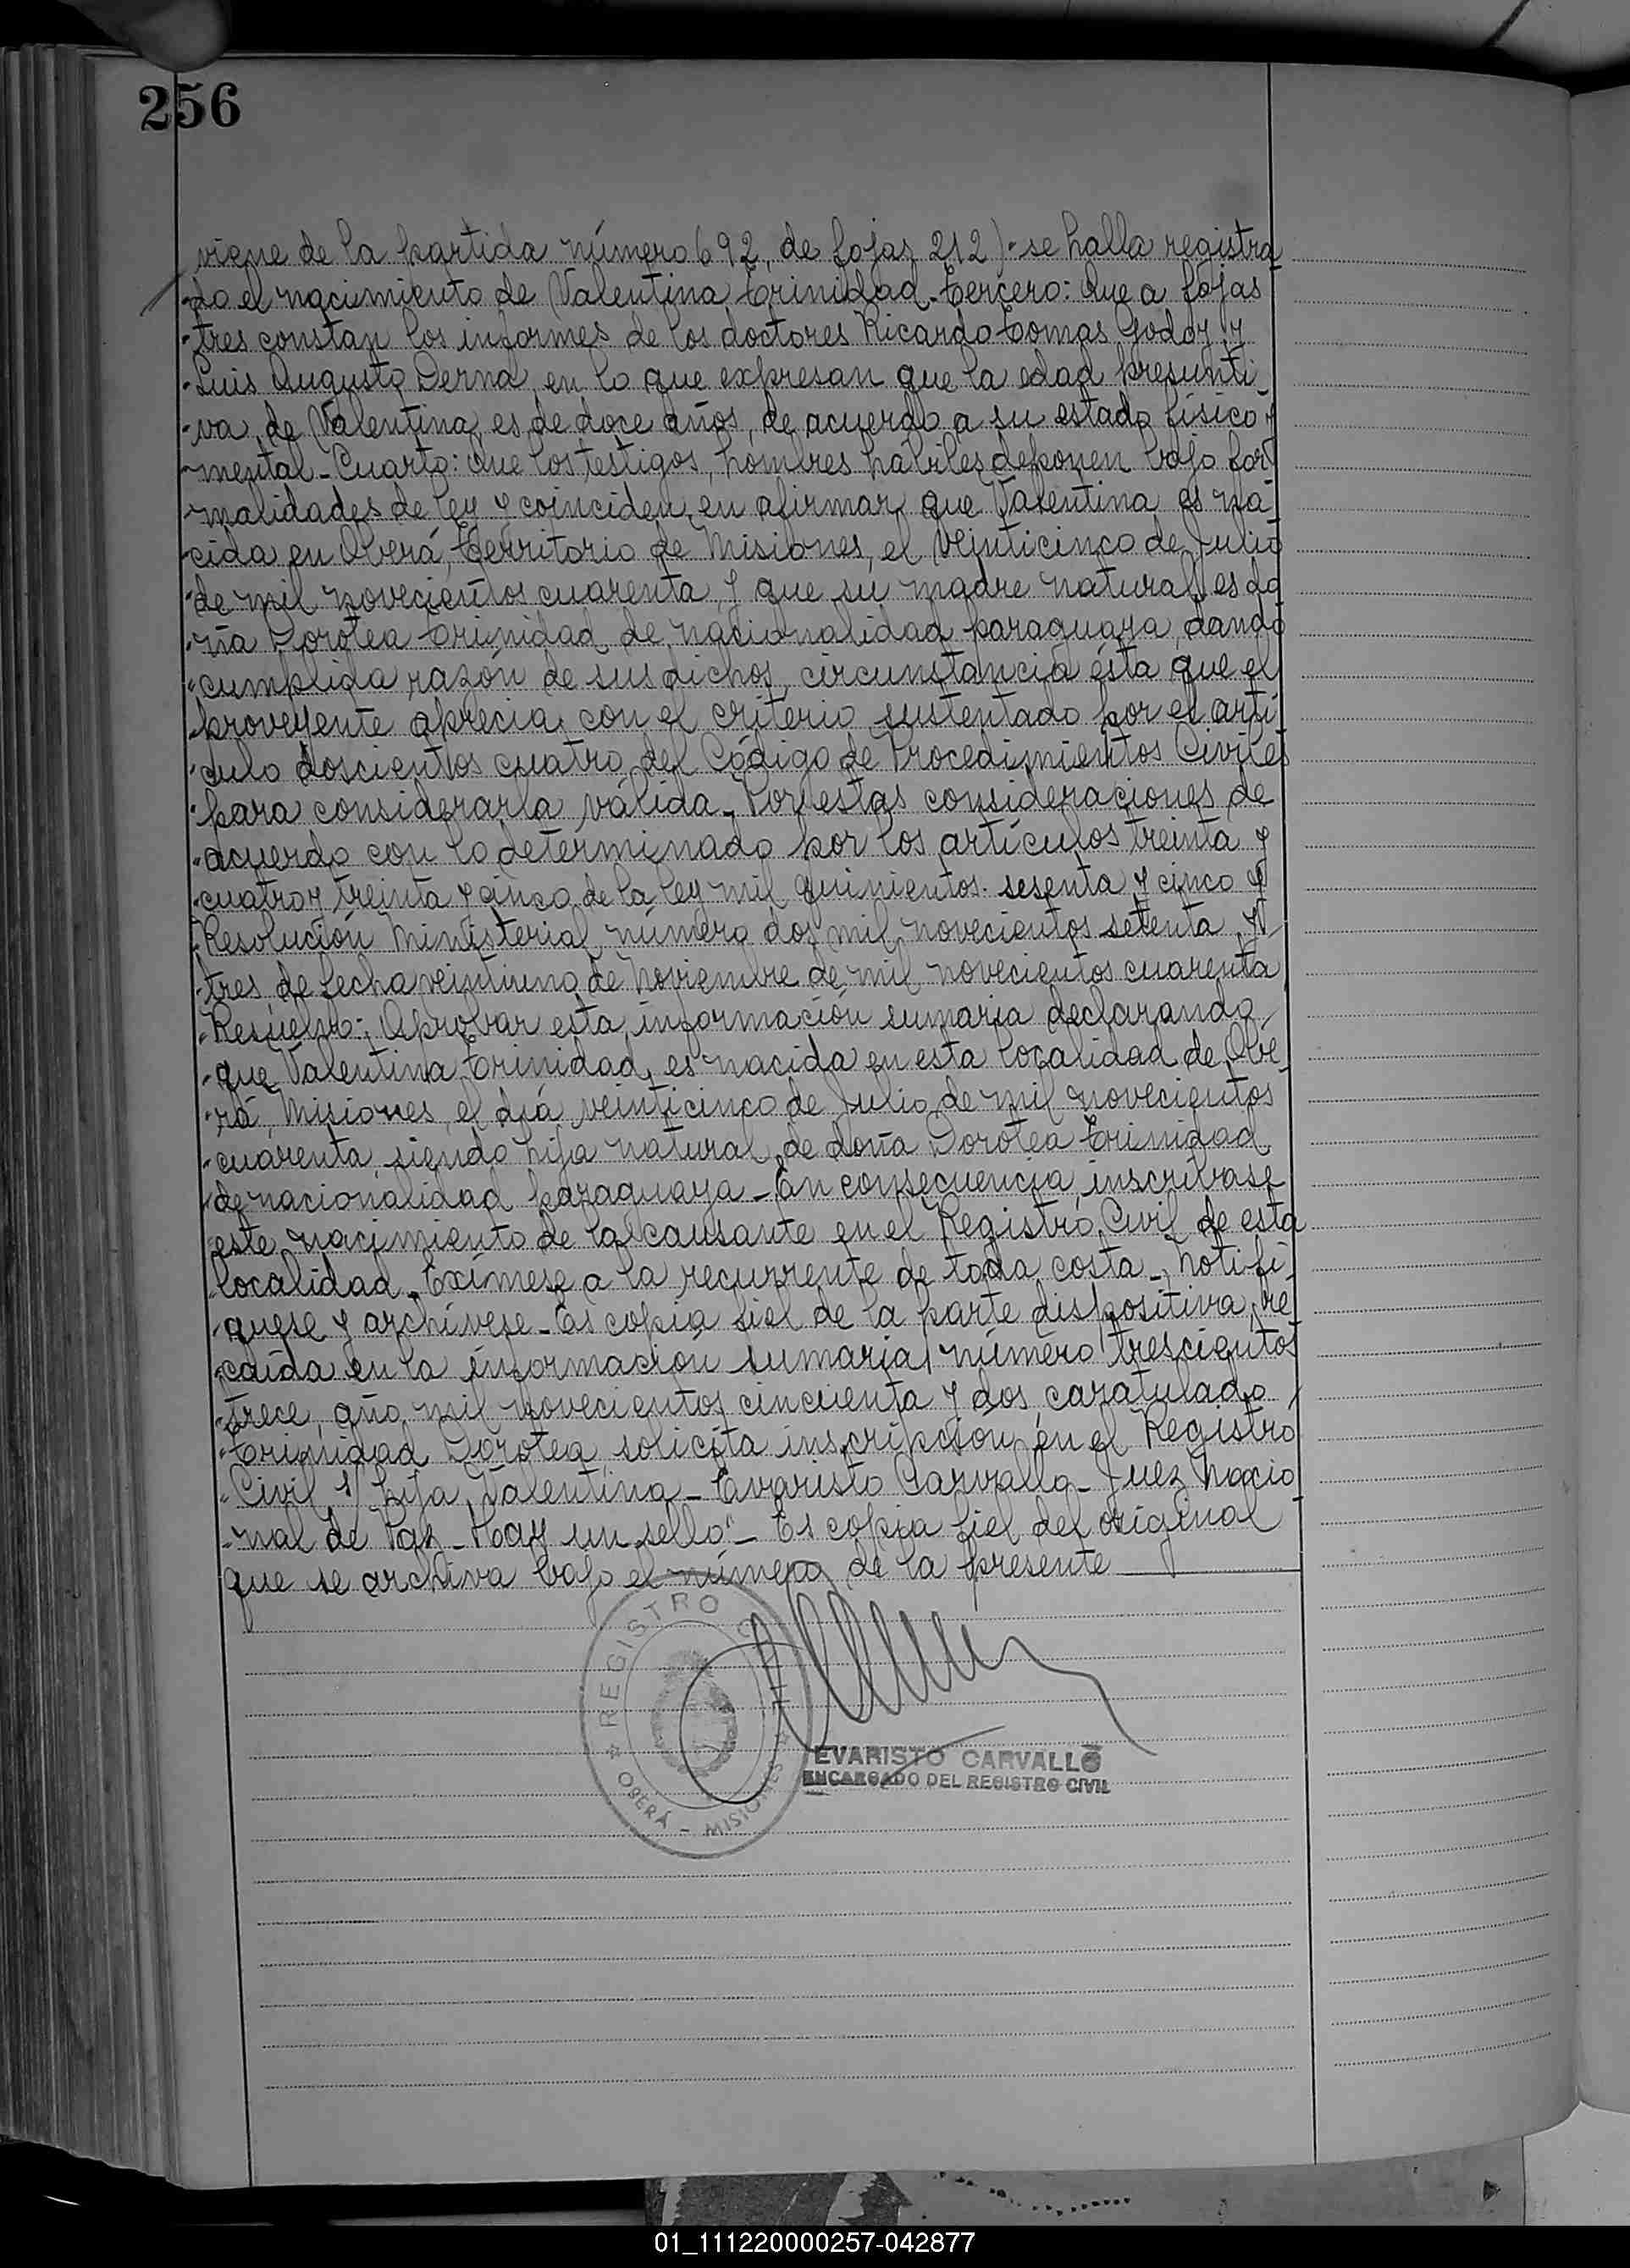 256
viene de la partida número 692, de fojas 212)- se halla registra
"do el nacimiento de Valentina Trinidad-Tercero: Que a fojas
"tres constan los informes de los doctores Ricardo Tomas Godoy y
"Luis Augusto Derna, en lo que expresan que la edad presunti_
"va, de Valentina, es de doce años, de acuerdo a su estado físico y
"mental-Cuarto: Que los testigos, hombres hábiles deponen bajo for
"malidades de ley y coinciden en afirmar que Valentina es na_
"cida en Oberá, Territorio de Misiones, el veinticinco de Julio
"de mil novecientos cuarenta, y que su madre natural es do
"ña Dorotea Trinidad de nacionalidad paraguaya, dando
"cumplida razón de sus dichos, circunstancia ésta que el
"proveyente aprecia con el criterio sustentado por el artí
"culo doscientos cuatro del Código de Procedimientos Civiles
"para considerarla válida_ Por estas consideraciones de
"acuerdo con lo determinado por los artículos treinta y
"cuatro y treinta y cinco de la ley mil quinientos sesenta y cinco y
"Resolución Ministerial número dos mil novecientos setenta y
"tres de fecha veintiuno de Noviembre de mil novecientos cuarenta
"Resuelvo: Aprobar esta información sumaria declarando
"que Valentina Trinidad, es nacida en esta localidad de Obe_
"rá, Misiones, el día veinticinco de Julio de mil novecientos
"cuarenta, siendo hija natural de doña Dorotea Trinidad
"de nacionalidad paraguaya-En consecuencia, inscríbase
"este nacimiento de la causante en el Registro Civil de esta
"localidad_ Exímese a la recurrente de toda costa_ Notifí_
"quese y archívese-Es copia fiel de la parte dispositiva re
"caída en la información sumaria número trescientos
"trece, año mil novecientos cincuenta y dos, caratulado
"Trinidad Dorotea, solicita inscripción en el Registro
"Civil, s/ hija, Valentina-Evaristo Carvallo-Juez Nacio
"nal de Paz-Hay un sello"-Es copia fiel del original
que se archiva bajo el número de la presente
REGISTRO CIVIL
OBERÁ - MISIONES
EVARISTO CARVALLO
ENCARGADO DEL REGISTRO CIVIL
01_111220000257-042877